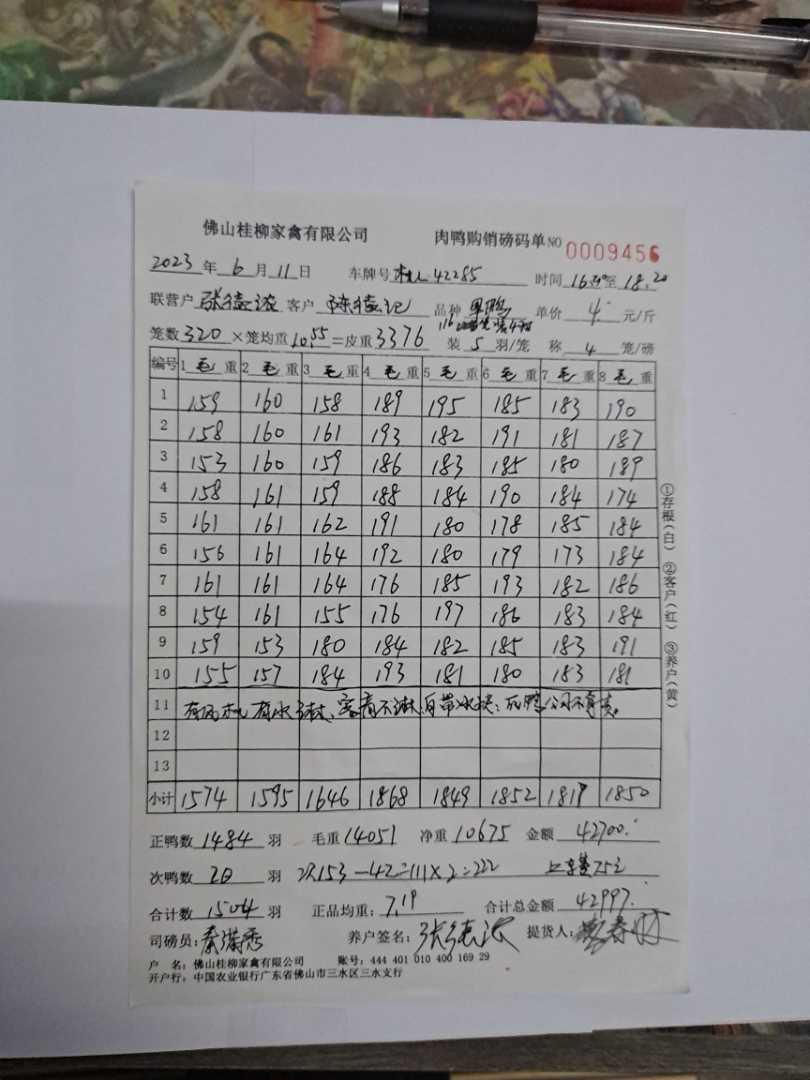 佛山桂柳家禽有限公司 肉鸭购销磅码单 NO 0009456
2023 年 6 月 11 日 车牌号 42285 时间 16 30 至 18.20
联营户 张德 客户 陈德记 品种 单价 4. 元/斤
笼数 320 ×笼均重 10.55 =皮重 3376 装 5 羽/笼 称 4 笼/磅
编号 1 毛 重 2 毛 重 3 毛 重 4 毛 重 5 毛 重 6 毛 重 7 毛 重 8 毛 重
1 159 160 158 189 195 185 183 190
2 158 160 161 193 182 191 181 187
3 153 160 159 186 183 185 180 189
4 158 161 159 188 184 190 184 174
5 161 161 162 191 180 178 185 184
6 156 161 164 192 180 179 173 184
7 161 161 164 176 185 193 182 186
8 154 161 155 176 197 186 183 184
9 159 153 180 184 182 185 183 191
10 155 157 184 193 181 180 183 181
11 有风机 有水 不淋 自带水 死鸭公司不负责。
12
13
小计 1574 1595 1646 1868 1849 1852 1817 1850
正鸭数 1484 羽 毛重 14051 净重 10675 金额 42700.
次鸭数 20 羽 次153-42=111×2=222 75元
合计数 1504 羽 正品均重: 7.19 合计总金额 42997.
司磅员: 秦满 养户签名: 张德 提货人:
户 名: 佛山桂柳家禽有限公司 账号: 444 401 010 400 169 29
开户行: 中国农业银行广东省佛山市三水区三水支行
①存根(白) ②客户(红) ③养户(黄)